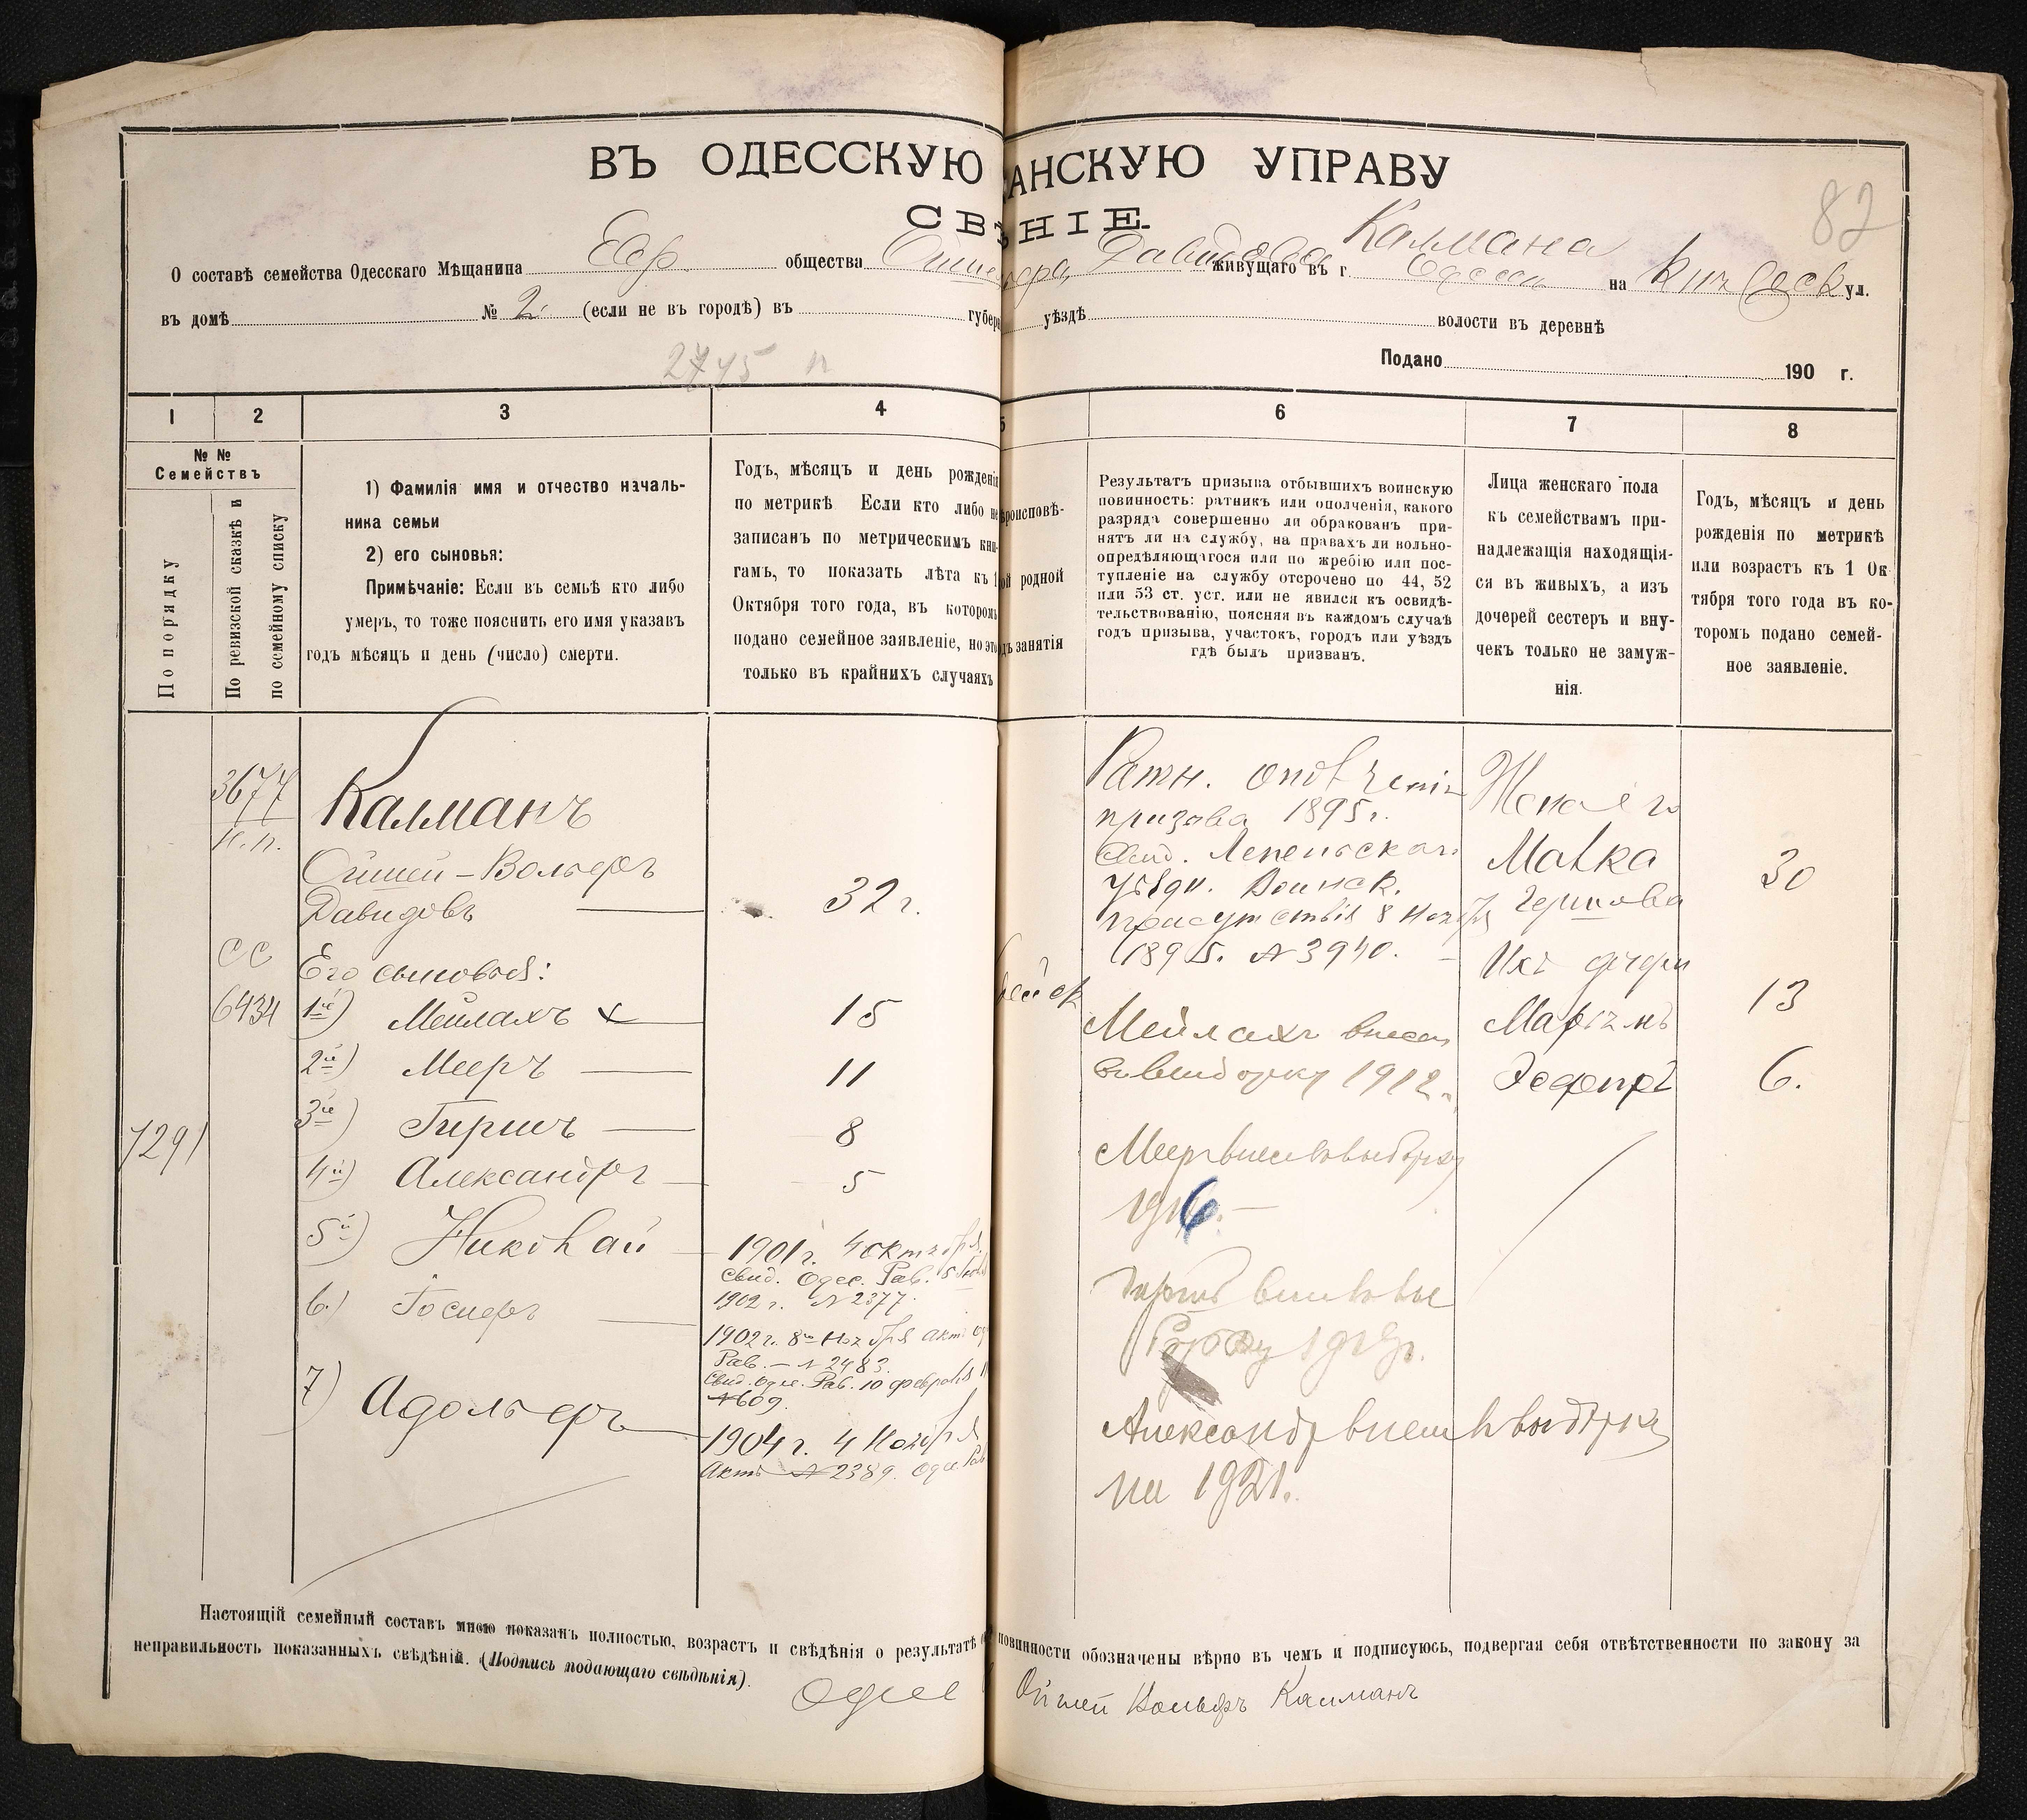 ВЪ ОДЕССКУЮ АНСКУЮ УПРАВУ
СВѢ НІЕ.
82
О составѣ семейства Одесскаго Мѣщанина Евр. общества Давидова Калмана живущаго въ г. Одессѣ на ул.
въ домѣ № 2. (если не въ городѣ) въ губер уѣздѣ волости въ деревнѣ
2745 п
Подано 190 г.
1 2 3 4 5 6 7 8
№ №
Семействъ
По порядку
По ревизской сказкѣ и
по семейному списку
1) Фамилія имя и отчество началь-
ника семьи
2) его сыновья:
Примѣчаніе: Если въ семьѣ кто либо
умеръ, то тоже пояснить его имя указавъ
годъ мѣсяцъ и день (число) смерти.
Годъ, мѣсяцъ и день рожденія
по метрикѣ Если кто либо не
записанъ по метрическимъ кни-
гамъ, то показать лѣта къ 1
Октября того года, въ которомъ
подано семейное заявленіе, но это
только въ крайнихъ случаяхъ
роисповѣ-
ой родной
дъ занятія
Результатъ призыва отбывшихъ воинскую
повинность: ратникъ или ополченія, какого
разряда совершенно ли обракованъ при-
нятъ ли на службу, на правахъ ли вольно-
опредѣляющагося или по жребію или пос-
тупленіе на службу отсрочено по 44, 52
или 53 ст. уст. или не явился къ освидѣ-
тельствованію, поясняя въ каждомъ случаѣ
годъ призыва, участокъ, городъ или уѣздъ
гдѣ былъ призванъ.
Лица женскаго пола
къ семействамъ при-
надлежащія находящія-
ся въ живыхъ, а изъ
дочерей сестеръ и вну-
чекъ только не замуж-
нія.
Годъ, мѣсяцъ и день
рожденія по метрикѣ
или возрастъ къ 1 Ок
тября того года въ ко-
торомъ подано семей-
ное заявленіе.
3677
н.п.
СС
6434
7291
Калманъ
Ойшей-Вольфъ
Давидовъ 32 г.
Его сыновья:
1й) Мейлахъ х 15
2й) Мееръ 11
3й) Гиршъ 8
4й) Александръ 5
5й) Николай 1901 г. 4 октября.
свид. Одес. Рав. 5
1902 г. № 2377.
6.) Іосифъ 1902 г. 8го Ноября актъ
Рав. — № 2483.
свид. Одес. Рав. 10 февраля
№ 609.
7) Адольфъ 1904 г. 4 Ноября
Актъ № 2389. Одес Рав
ейск
Ратн. ополченія
призыва 1895 г.
Свид. Лепельскаго
уѣздн. Воинск.
присутствія 8 Ноября
1895. № 3940.
Мейлахъ внесен
въ выборку 1912 г.
Меер внес въ выборку
1916.
Гиршъ внес въ вы
борку
Александръ внес въ выборку
на 1921.
Жена его
Малка
Гершова 30
Ихъ дочери
13
Эсфирь 6.
Настоящій семейный составъ мною показанъ полностью, возрастъ и свѣдѣнія о результатѣ повинности обозначены вѣрно въ чемъ и подписуюсь, подвергая себя отвѣтственности по закону за
неправильность показанныхъ свѣдѣній. (Подпись подающаго свѣдѣнія).
Ойшей Вольфъ Калманъ